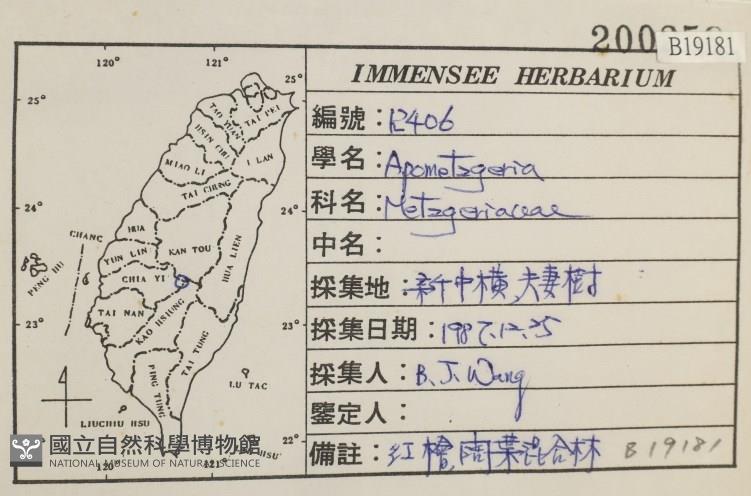 B19181
IMMENSEE HERBARIUM
編號：12406
學名：Apometzgeria
科名：Metzgeriaceae
中名：
採集地：新中橫,夫妻樹
採集日期：1987.12.25
採集人：B.J.Wang
鑒定人：
備註：紅檜,闊葉混合林 B19181
120° 121°
25° 25°
TAI PEI
TAO YUAN
HSIN CHU
I LAN
MIAO LI
TAI CHUNG
24° 24°
CHANG HUA
KAN TOU
HUA LIEN
YUN LIN
PENG HU
CHIA YI
TAI NAN
23° 23°
KAO HSIUNG
TAI TUNG
PING TUNG
LU TAC
LIUCHIU HSU
22°
HSU
120° 121°
國立自然科學博物館
NATIONAL MUSEUM OF NATURAL SCIENCE